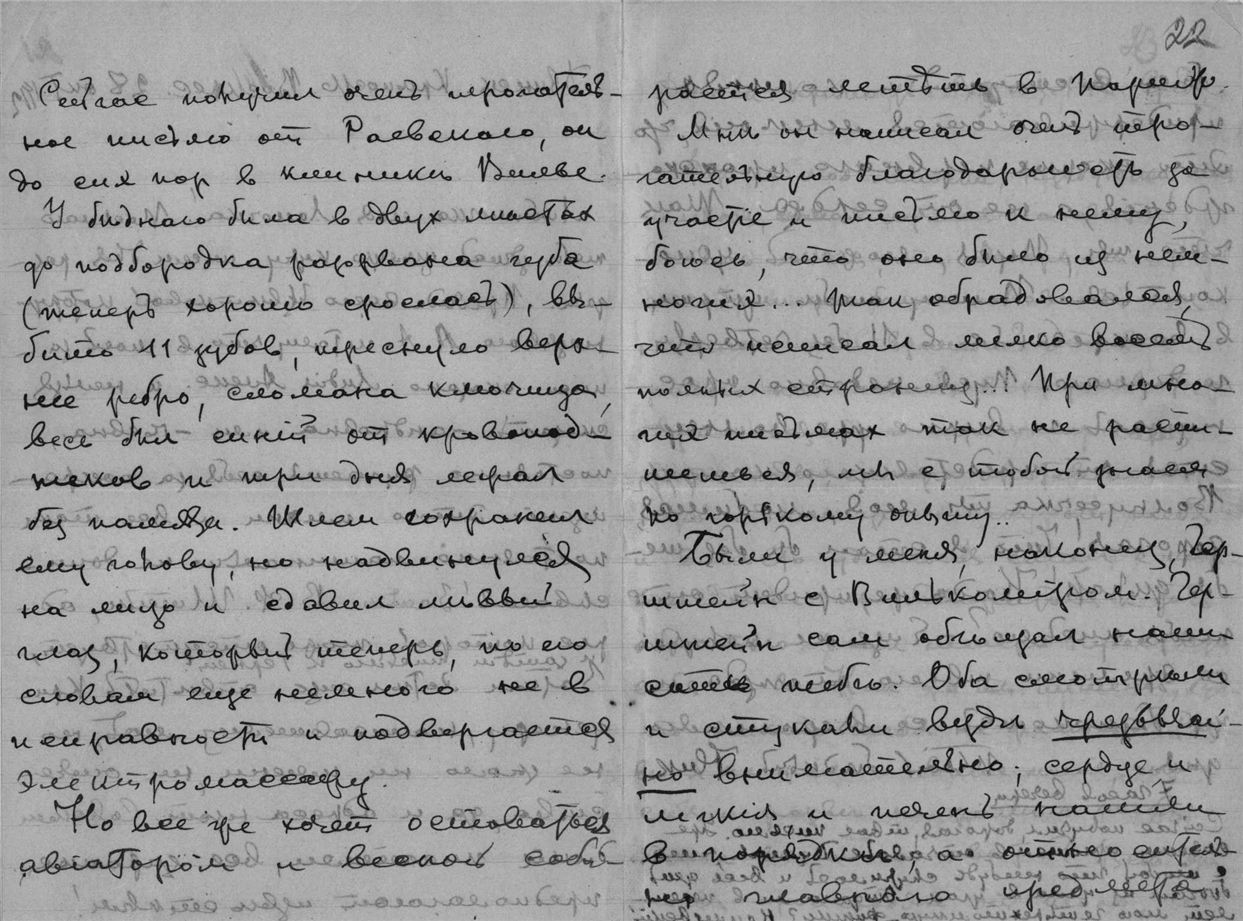 22
Сейчас получил очень трогатель-
ное письмо от Раевского, он
до сих пор в клиникѣ
У бѣднаго была в двух мѣстах
до подбородка разорвана губа
(теперь хорошо срослась), вы-
бито 11 зубов, треснуло верх-
нее ребро, сломана ключица,
весь был синiй от кровопод-
теков и три дня лежал
без памяти. Шлем сохранил
ему голову, но надвинулся
на лицо и сдавил лѣвый
глаз, который теперь, по его
словам еще немного не в
исправности и подвергается
электромассажу.
Но все же хочет оставаться
авiатором и весной собi-
рается летѣть в Париж.
Мнѣ он написал очень тро-
гательную благодарность за
участiе и письмо к нему,
боюсь, что оно было из нем-
ногих... Так обрадовался,
что написал мелко восемь
полных страниц!! При мно-
гих письмах так не распи-
шешься, мы с тобой знаем
по горькому опыту..
Были у меня, наконец, Гер-
штейн с Вилькомiром. Гер-
штейн сам обѣщал напи-
сать тебѣ. Оба смотрѣли
и стукали вездѣ чрезвычай-
но внимательно; сердце и
легкiя и печень нашли
в порядкѣ, а относитель-
но главнаго предмета